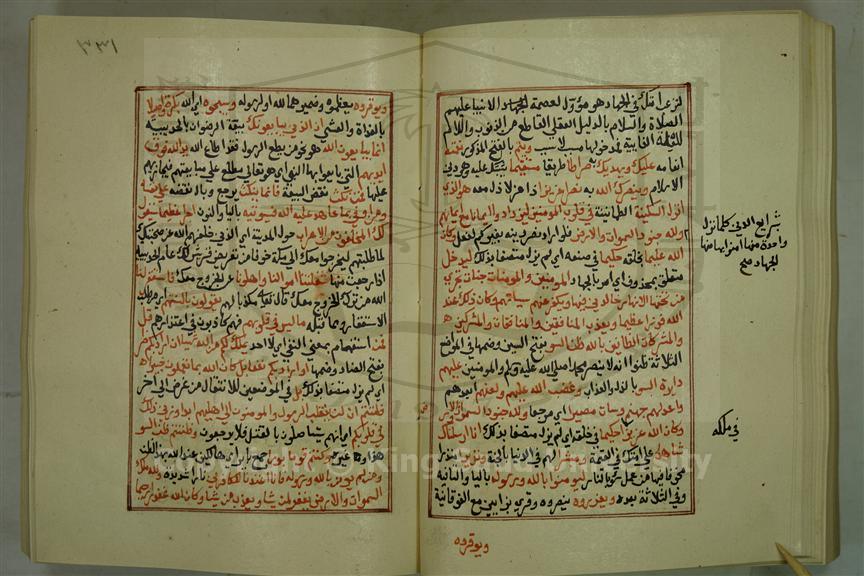 لترغب امتك في الجهاد وهو مؤول لعصمة الانبياء عليهم
الصلاة والسلام بالدليل العقلي القاطع من الذنوب واللام
للعلة الغائية فمدخولها مسبب لا سبب ويتم بالفتح المذكور نعمته
انعامه عليك ويهديك به صراطا طريقا مستقيما يثبتك عليه وهو دين
الاسلام وينصرك الله به نصرا عزيزا ذا عز لا ذل معه هو الذي
انزل السكينة الطمانينة في قلوب المومنين ليزدادوا ايمانا مع ايمانهم
ولله جنود السموات والارض فلو اراد نصر دينه بغيركم لفعل وكان
الله عليما بخلقه حكيما في صنعه اي لم يزل متصفا بذلك ليدخل
متعلق بمحذوف اي امر بالجهاد المومنين والمومنات جنات تجري
من تحتها الانهار خالدين فيها ويكفر عنهم سياتهم وكان ذلك عند
الله فوزا عظيما ويعذب المنافقين والمنافقات والمشركين
والمشركات الظانين بالله ظن السوء بفتح السين وضمها في المواضع
الثلاثة ظنوا انه لا ينصر محمدا صلي الله عليه وسلم والمومنين عليهم
دايرة السوء بالذل والعذاب وغضب الله عليهم ولعنهم ابعدهم
واعد لهم جهنم وسات مصيرا اي مرجعا ولله جنود السموات والارض
وكان الله عزيزا حكيما في خلقه اي لم يزل متصفا بذلك انا ارسلناك
شاهدا علي امتك في القيمة ومبشرا لهم في الدنيا بالجنة ونذيرا منذرا
مخوفا فيها من عمل سوء بالنار ليومنوا بالله ورسوله بالياء والتاء فيه
وفي الثلاثة بعده ويعزروه ينصروه وقري بزايين مع الفوقانية
ويوقروه
شرايع الدين كلما نزل
واحدة منها امنوا بها منها
الجهاد صح
في ملكه
٣٣١
ويوقروه يعظموه وضميرهما لله او لرسوله ويسبحوه اي الله بكرة واصيلا
بالغداة والعشي ان الذين يبايعونك بيعة الرضوان بالحديبية
انما يبايعون الله هو نحو من يطع الرسول فقد اطاع الله يد الله فوق
ايديهم التي بايعوا بها النبي اي هو تعالي مطلع علي مبايعتهم فيجازيهم
عليها فمن نكث نقض البيعة فانما ينكث يرجع وبال نقضه علي نفسه
ومن اوفي بما عاهد عليه الله فسيوتيه بالياء والنون اجرا عظيما سيقول
لك المخلفون من الاعراب حول المدينة اي الذين خلفهم الله عن صحبتك
لما طلبتهم ليخرجوا معك الي مكة خوفا من تعرض قريش لك عام الحديبية
اذا رجعت منها شغلتنا اموالنا واهلونا عن الخروج معك فاستغفر لنا
الله من ترك الخروج معك قال تعالي مكذبا لهم يقولون بالسنتهم اي من طلب
الاستغفار وما قبله ما ليس في قلوبهم فهم كاذبون في اعتذارهم قل
فمن استفهام بمعني النفي اي لا احد يملك لكم من الله شيا ان اراد بكم ضرا
بفتح الضاد وضمها او اراد بكم نفعا بل كان الله بما تعملون خبيرا
اي لم يزل متصفا بذلك بل في الموضعين للانتقال من غرض الي اخر
ظننتم ان لن ينقلب الرسول والمومنون الي اهليهم ابدا وزين ذلك
في قلوبكم اي انهم يستاصلون بالقتل فلا يرجعون وظننتم ظن السوء
هذا وغيره وكنتم قوما بورا جمع باير اي هالكين عند الله بهذا الظن
ومن لم يومن بالله ورسوله فانا اعتدنا للكافرين سعيرا نارا شديدة ولله ملك
السموات والارض يغفر لمن يشا ويعذب من يشا وكان الله غفورا رحيما